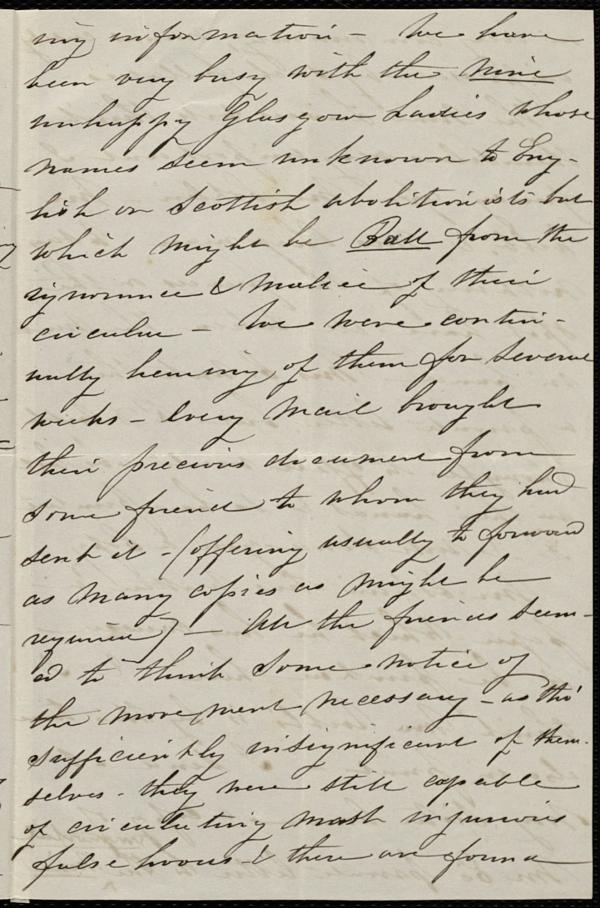 ing information - We have
been very busy with the nine
unhappy Glasgow Ladies whose
names seem unknown to Eng-
lish or Scottish abolitionists but
which might be Ball from the
ignorance & malice of their
circular - We were contin-
ually hearing of them for several
weeks - Every Mail brought
their precious document from
some friend to whom they had
sent it - (offering usually to forward
as many copies as might be
required) - All the friends seem-
ed to think some notice of
the movement necessary - as tho'
sufficiently insignificant of them-
selves - they were still capable
of circulating most injurious
falsehoods - & there are found